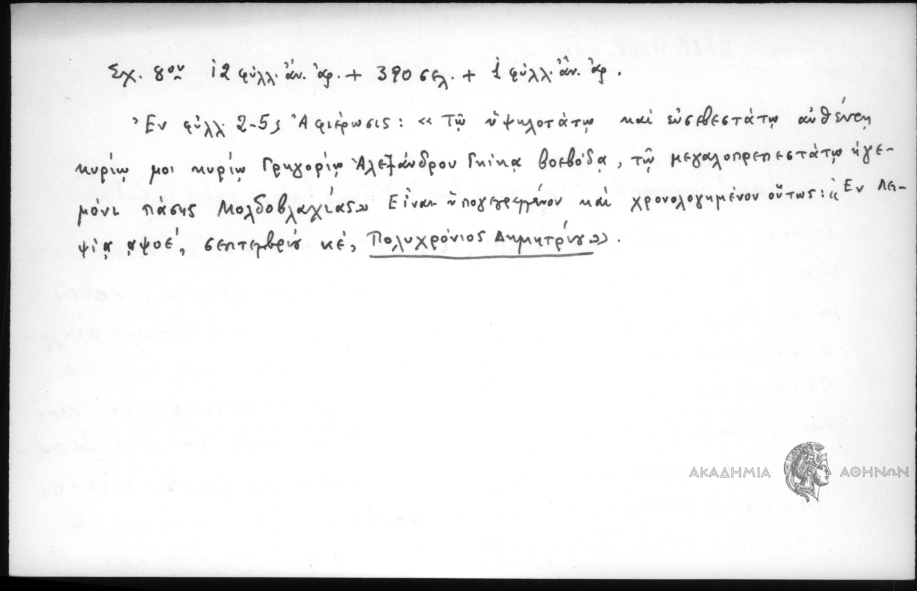 Σχ. 8ον 12 φύλλ. ἀν. ἀρ. + 390 σελ. + 1 φύλλ. ἀν. ἀρ.
Ἐν φύλλ 2-5; Ἀφιέρωσις: «Τῷ ὑψηλοτάτῳ καὶ εὐσεβεστάτῳ αὐθέντῃ
κυρίῳ μοι κυρίῳ Γρηγορίῳ Ἀλεξάνδρου Γκίκα βοεβόδᾳ, τῷ μεγαλοπρεπεστάτῳ ἡγε-
μόνι πάσης Μολδοβλαχίας» Εἶναι ὑπογεγραμμένον καὶ χρονολογημένον οὕτως: «Ἐν Λει-
ψίᾳ αψοέ, σεπτεμβρίου κέ, Πολυχρόνιος Δημητρίου».
ΑΚΑΔΗΜΙΑ ΑΘΗΝΩΝ